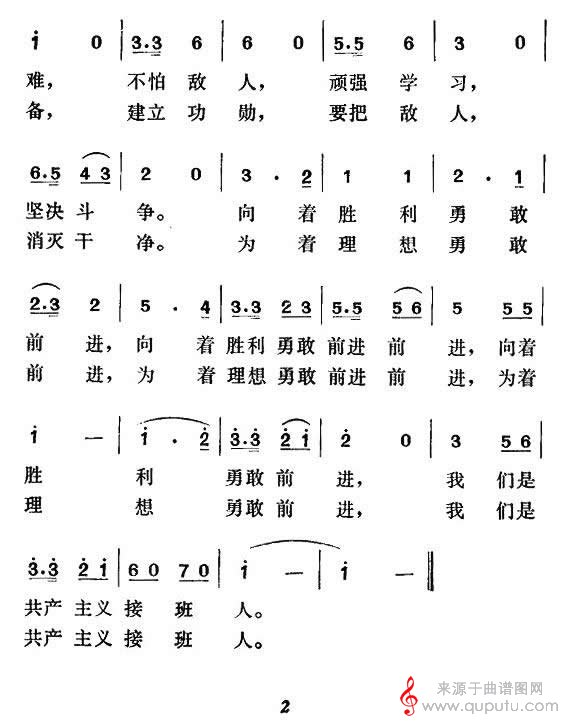 i 0 | 3.3 6 | 6 0 | 5.5 6 | 3 0 |
难， 不怕 敌 人， 顽强 学 习，
备， 建立 功 勋， 要把 敌 人，
6.5 4 3 | 2 0 | 3 . 2 | 1 1 | 2 . 1 |
坚决 斗 争。 向 着 胜 利 勇 敢
消灭 干 净。 为 着 理 想 勇 敢
2.3 2 | 5 . 4 | 3.3 2 3 | 5.5 5 6 | 5 5 5 |
前 进， 向 着 胜利 勇敢 前进 前 进， 向着
前 进， 为 着 理想 勇敢 前进 前 进， 为着
i — | i . 2 | 3.3 2 i | 2 0 | 3 5 6 |
胜 利 勇敢 前 进， 我 们是
理 想 勇敢 前 进， 我 们是
3.3 2 i | 6 0 7 0 | i — | i — ‖
共产 主义 接 班 人。
共产 主义 接 班 人。
2
来源于曲谱图网
www.quputu.com